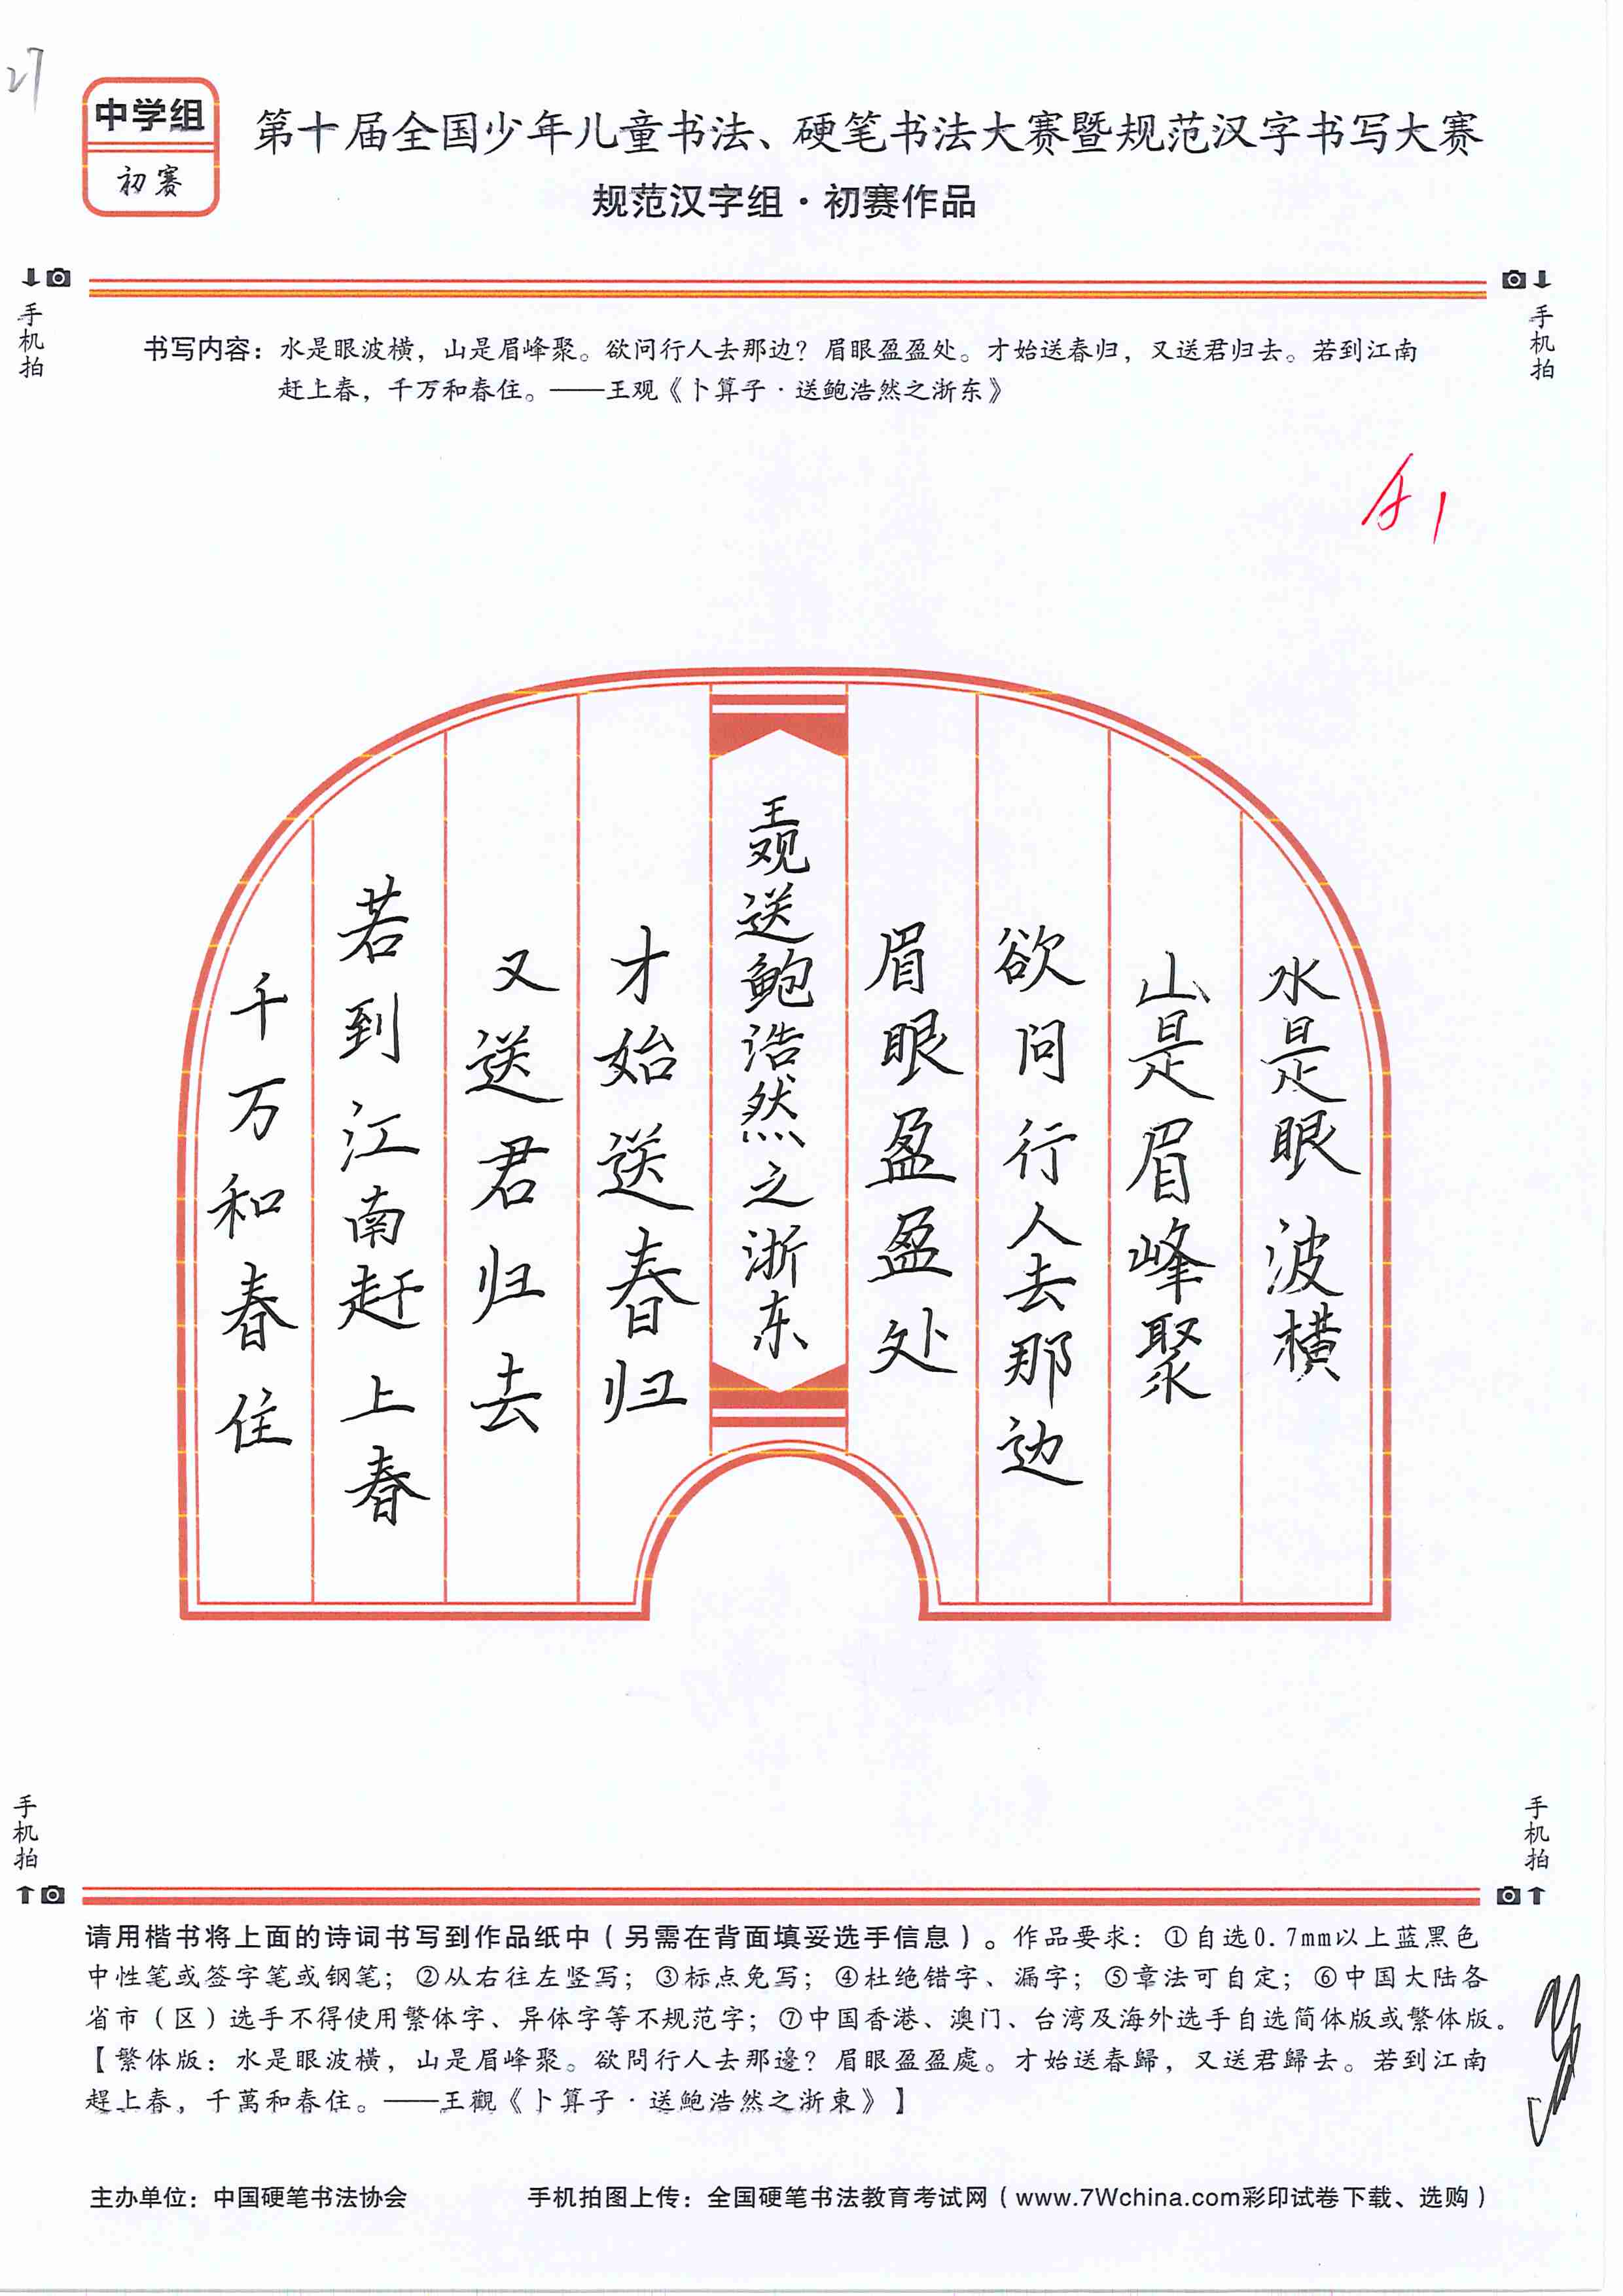 27
中学组
初赛
第十届全国少年儿童书法、硬笔书法大赛暨规范汉字书写大赛
规范汉字组·初赛作品
手机拍
手机拍
书写内容：水是眼波横，山是眉峰聚。欲问行人去那边？眉眼盈盈处。才始送春归，又送君归去。若到江南
赶上春，千万和春住。——王观《卜算子·送鲍浩然之浙东》
水是眼波横
山是眉峰聚
欲问行人去那边
眉眼盈盈处
王观送鲍浩然之浙东
才始送春归
又送君归去
若到江南赶上春
千万和春住
手机拍
手机拍
请用楷书将上面的诗词书写到作品纸中（另需在背面填妥选手信息）。作品要求：①自选0.7mm以上蓝黑色
中性笔或签字笔或钢笔；②从右往左竖写；③标点免写；④杜绝错字、漏字；⑤章法可自定；⑥中国大陆各
省市（区）选手不得使用繁体字、异体字等不规范字；⑦中国香港、澳门、台湾及海外选手自选简体版或繁体版。
【繁体版：水是眼波橫，山是眉峰聚。欲問行人去那邊？眉眼盈盈處。才始送春歸，又送君歸去。若到江南
趕上春，千萬和春住。——王觀《卜算子·送鮑浩然之浙東》】
主办单位：中国硬笔书法协会
手机拍图上传：全国硬笔书法教育考试网（www.7Wchina.com彩印试卷下载、选购）